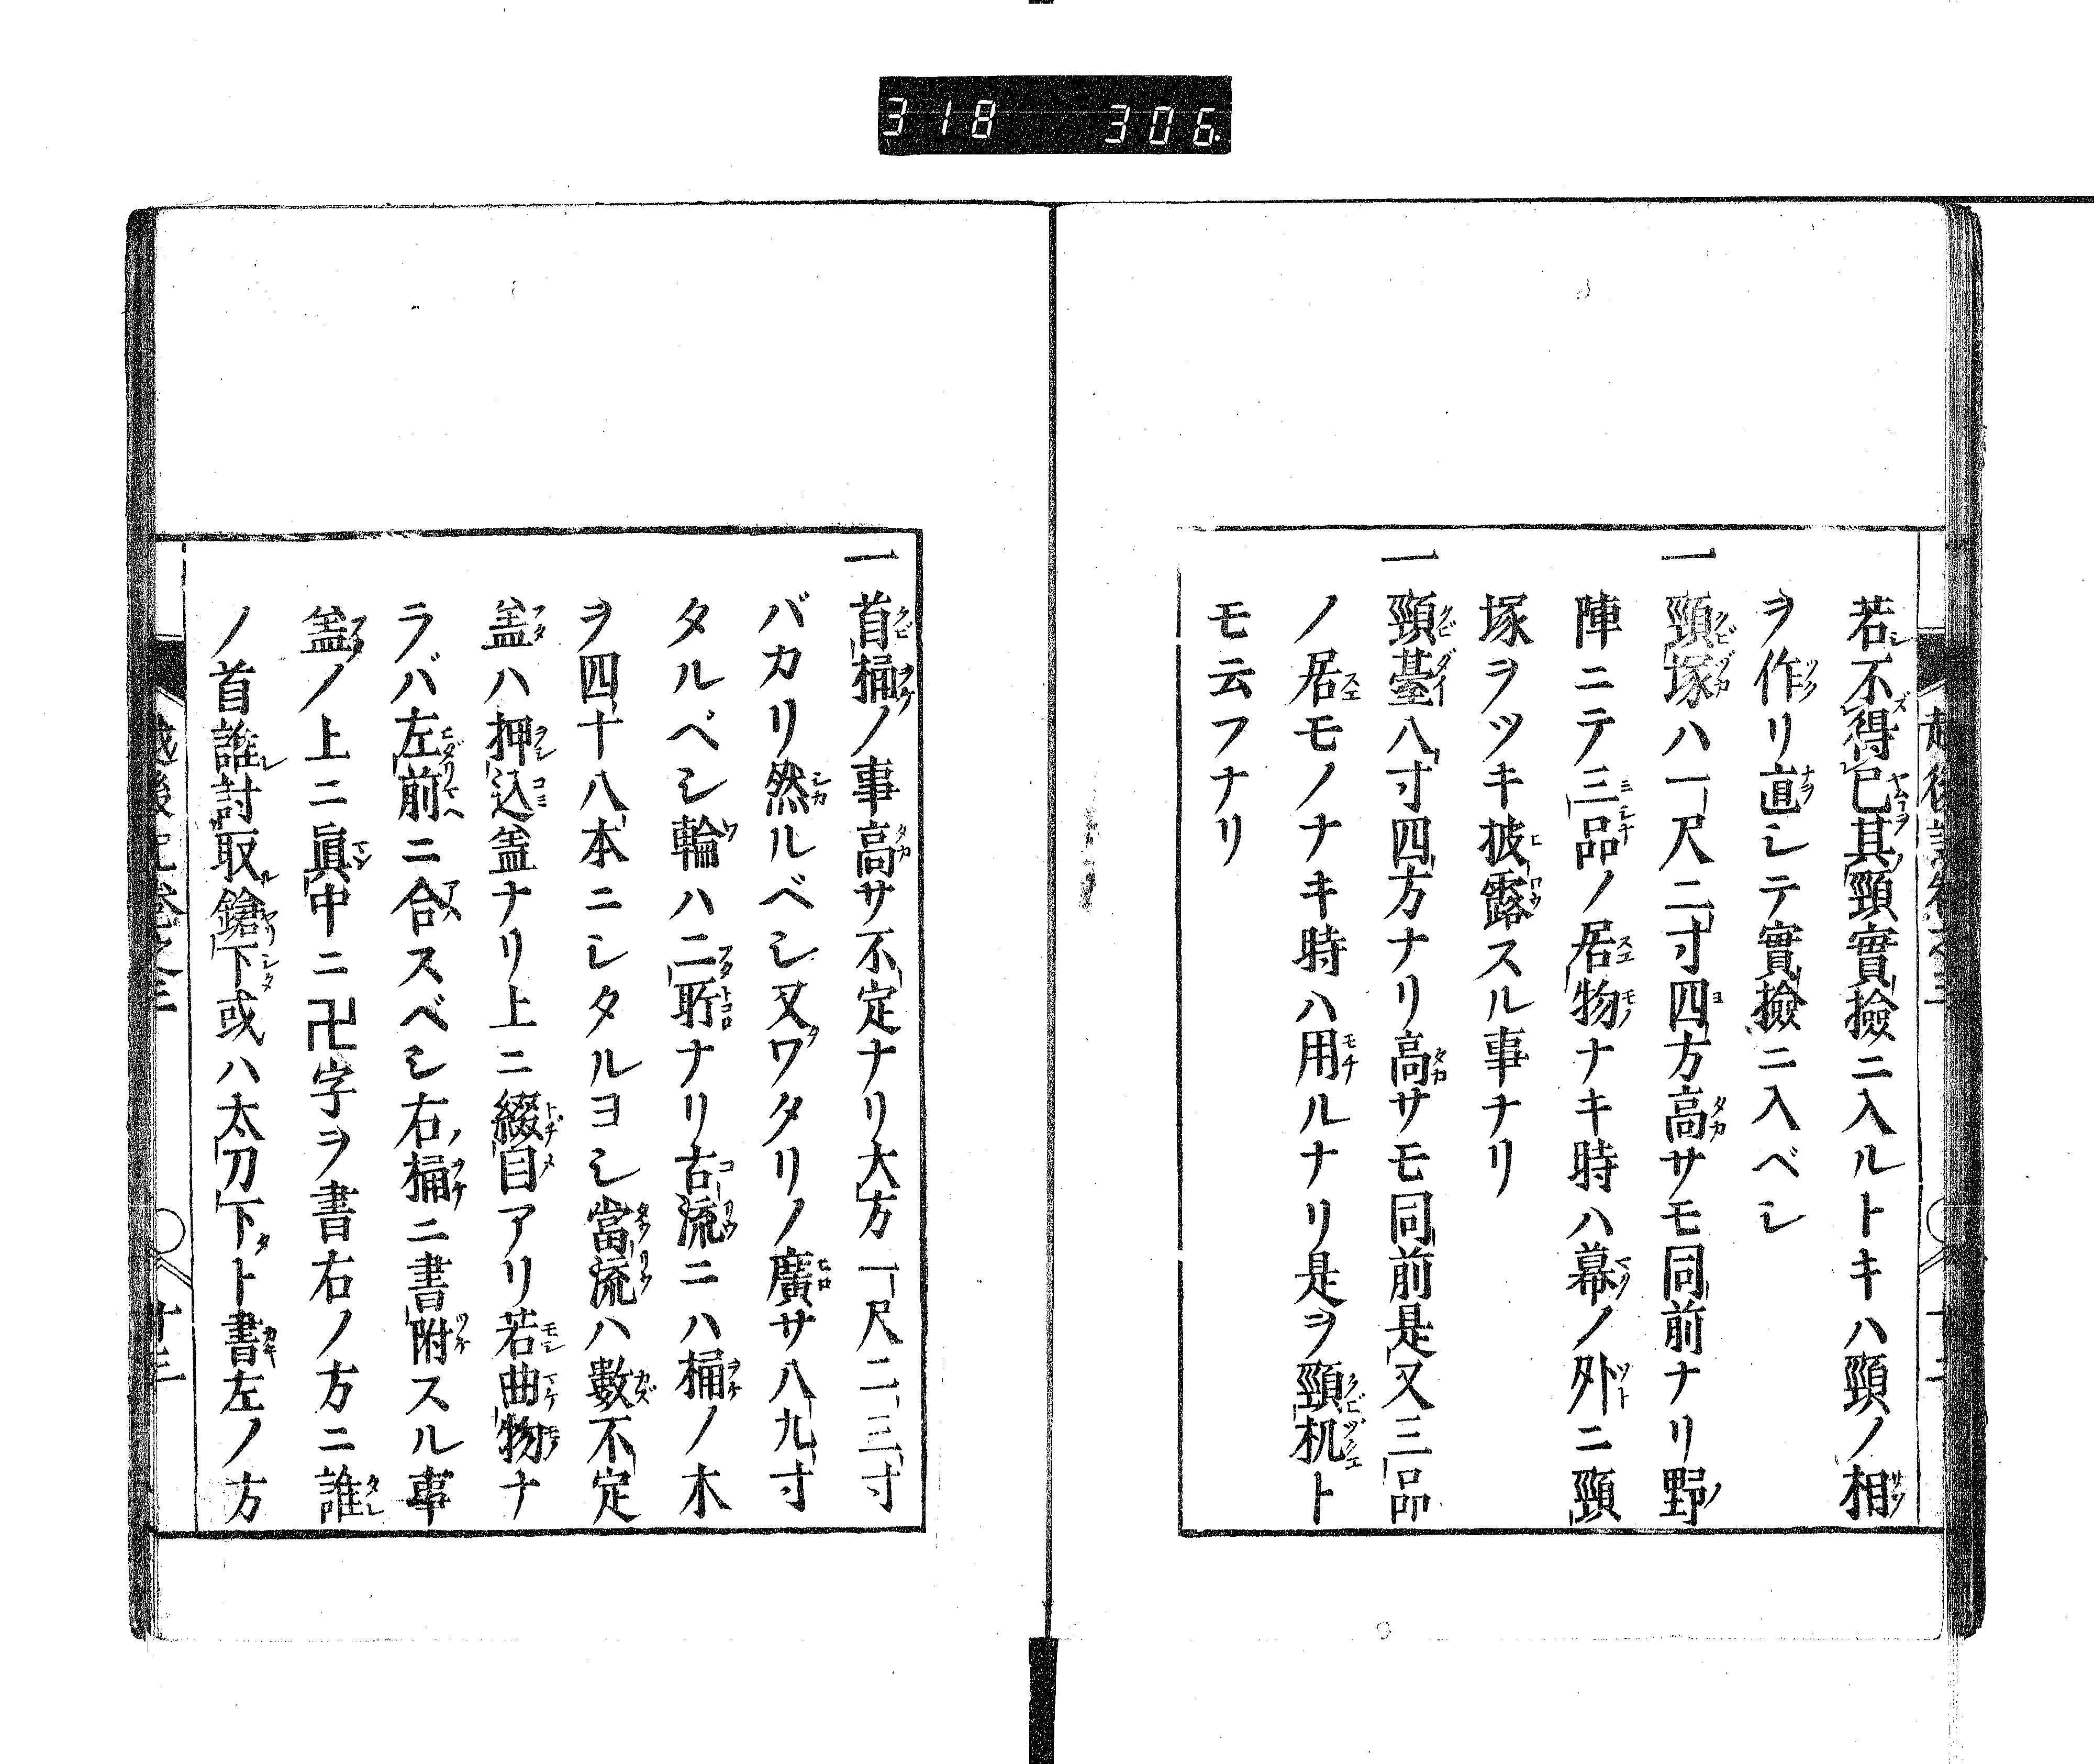 318 306
若不得已其頸實撿ニ入ルトキハ頸ノ相
ヲ作リ直シテ實撿ニ入ベシ
一頸塚ハ一尺二寸四方高サモ同前ナリ野
陣ニテ三品ノ居物ナキ時ハ幕ノ外ニ頸
塚ヲツキ披露スル事ナリ
一頸䑓八寸四方ナリ高サモ同前是又三品
ノ居モノナキ時ハ用ルナリ是ヲ頸机ト
モ云フナリ
一首桶ノ事高サ不定ナリ大方一尺二三寸
バカリ然ルベシ又ワタリノ廣サ八九寸
タルベシ輪ハ二所ナリ古流ニハ桶ノ木
ヲ四十八本ニシタルヨシ當流ハ數不定
盖ハ押込盖ナリ上ニ綴目アリ若曲物ナ
ラバ左前ニ合スベシ右桶ニ書附スル事
盖ノ上ニ眞中ニ卍字ヲ書右ノ方ニ誰
ノ首誰討取鎗下或ハ太刀下ト書左ノ方